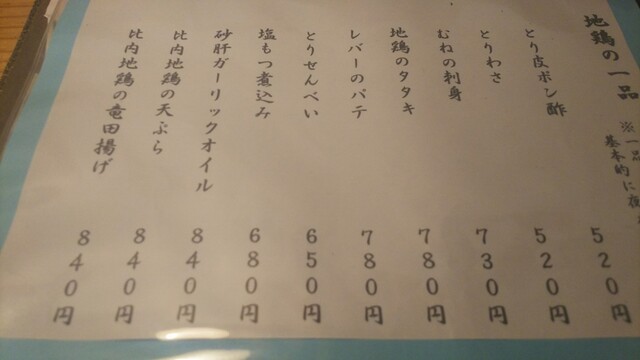 地鶏の一品
※一品
基本的に夜
とり皮ポン酢 520円
とりわさ 520円
むねの刺身 730円
地鶏のタタキ 780円
レバーのパテ 780円
とりせんべい 650円
塩もつ煮込み 680円
砂肝ガーリックオイル 840円
比内地鶏の天ぷら 840円
比内地鶏の竜田揚げ 840円